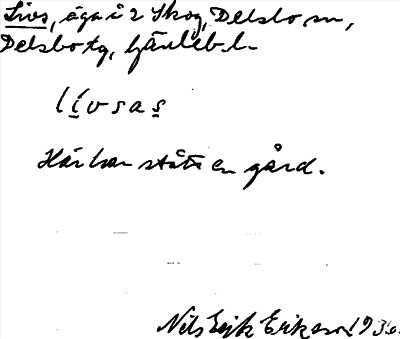 Livs, äga i 2 Skog, Delsbo sn,
Delsbo tg, Gävleb. l.
l í v s a s
Här har stått en gård.
Nils Erik Erikson 1936.